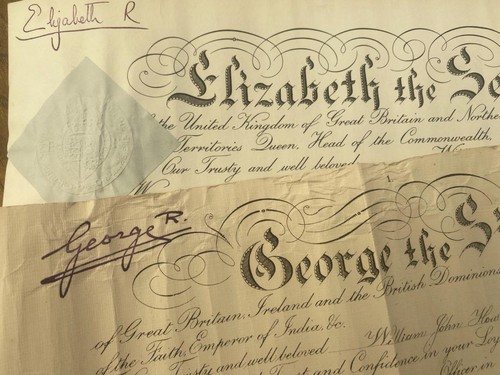 Elizabeth R
Elizabeth the Se
the United Kingdom of Great Britain and Northe
Territories Queen, Head of the Commonwealth,
Our Trusty and well beloved
George R.
George the S
of Great Britain, Ireland and the British Dominions
of the Faith, Emperor of India &c.
and well beloved William John How
and Confidence in your Loy
Officer in